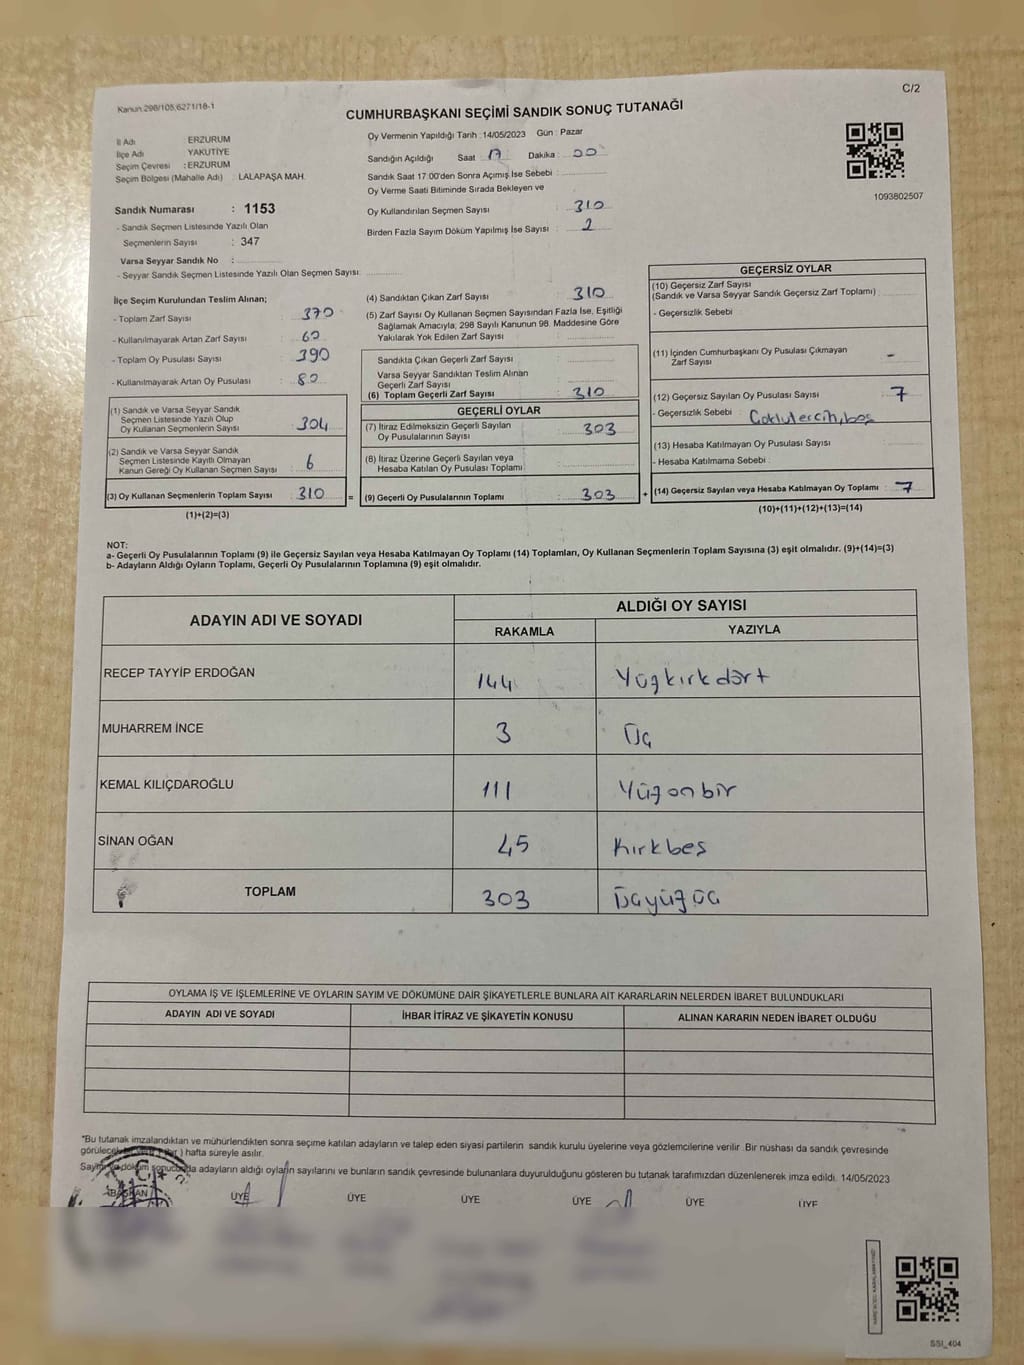 Kanun:298/105;6271/18-1
C/2
CUMHURBAŞKANI SEÇİMİ SANDIK SONUÇ TUTANAĞI
İl Adı ERZURUM
İlçe Adı YAKUTİYE
Seçim Çevresi : ERZURUM
Seçim Bölgesi (Mahalle Adı) : LALAPAŞA MAH.
Sandık Numarası : 1153
- Sandık Seçmen Listesinde Yazılı Olan
Seçmenlerin Sayısı : 347
Varsa Seyyar Sandık No :
- Seyyar Sandık Seçmen Listesinde Yazılı Olan Seçmen Sayısı:
Oy Vermenin Yapıldığı Tarih :14/05/2023 Gün : Pazar
Sandığın Açıldığı Saat 17 Dakika : 00
Sandık Saat 17:00'den Sonra Açılmış İse Sebebi :
Oy Verme Saati Bitiminde Sırada Bekleyen ve
Oy Kullandırılan Seçmen Sayısı : 310
Birden Fazla Sayım Döküm Yapılmış İse Sayısı : 2
1093802507
İlçe Seçim Kurulundan Teslim Alınan;
- Toplam Zarf Sayısı : 370
- Kullanılmayarak Artan Zarf Sayısı : 60
- Toplam Oy Pusulası Sayısı : 390
- Kullanılmayarak Artan Oy Pusulası : 80
(1) Sandık ve Varsa Seyyar Sandık
Seçmen Listesinde Yazılı Olup
Oy Kullanan Seçmenlerin Sayısı : 304
(2) Sandık ve Varsa Seyyar Sandık
Seçmen Listesinde Kayıtlı Olmayan
Kanun Gereği Oy Kullanan Seçmen Sayısı : 6
(3) Oy Kullanan Seçmenlerin Toplam Sayısı : 310 =
(1)+(2)=(3)
(4) Sandıktan Çıkan Zarf Sayısı : 310
(5) Zarf Sayısı Oy Kullanan Seçmen Sayısından Fazla İse, Eşitliği
Sağlamak Amacıyla; 298 Sayılı Kanunun 98. Maddesine Göre
Yakılarak Yok Edilen Zarf Sayısı :
Sandıkta Çıkan Geçerli Zarf Sayısı :
Varsa Seyyar Sandıktan Teslim Alınan
Geçerli Zarf Sayısı :
(6) Toplam Geçerli Zarf Sayısı : 310
GEÇERLİ OYLAR
(7) İtiraz Edilmeksizin Geçerli Sayılan
Oy Pusulalarının Sayısı : 303
(8) İtiraz Üzerine Geçerli Sayılan veya
Hesaba Katılan Oy Pusulası Toplamı :
(9) Geçerli Oy Pusulalarının Toplamı : 303 +
GEÇERSİZ OYLAR
(10) Geçersiz Zarf Sayısı
(Sandık ve Varsa Seyyar Sandık Geçersiz Zarf Toplamı) :
- Geçersizlik Sebebi :
(11) İçinden Cumhurbaşkanı Oy Pusulası Çıkmayan
Zarf Sayısı : -
(12) Geçersiz Sayılan Oy Pusulası Sayısı : 7
- Geçersizlik Sebebi : Çoklu tercih, boş
(13) Hesaba Katılmayan Oy Pusulası Sayısı :
- Hesaba Katılmama Sebebi :
(14) Geçersiz Sayılan veya Hesaba Katılmayan Oy Toplamı : 7
(10)+(11)+(12)+(13)=(14)
NOT:
a- Geçerli Oy Pusulalarının Toplamı (9) ile Geçersiz Sayılan veya Hesaba Katılmayan Oy Toplamı (14) Toplamları, Oy Kullanan Seçmenlerin Toplam Sayısına (3) eşit olmalıdır. (9)+(14)=(3)
b- Adayların Aldığı Oyların Toplamı, Geçerli Oy Pusulalarının Toplamına (9) eşit olmalıdır.
ADAYIN ADI VE SOYADI ALDIĞI OY SAYISI
RAKAMLA YAZIYLA
RECEP TAYYİP ERDOĞAN 144 Yüzkırkdört
MUHARREM İNCE 3 Üç
KEMAL KILIÇDAROĞLU 111 Yüzonbir
SİNAN OĞAN 45 Kırkbeş
TOPLAM 303 Üçyüzüç
OYLAMA İŞ VE İŞLEMLERİNE VE OYLARIN SAYIM VE DÖKÜMÜNE DAİR ŞİKAYETLERLE BUNLARA AİT KARARLARIN NELERDEN İBARET BULUNDUKLARI
ADAYIN ADI VE SOYADI İHBAR İTİRAZ VE ŞİKAYETİN KONUSU ALINAN KARARIN NEDEN İBARET OLDUĞU
*Bu tutanak imzalandıktan ve mühürlendikten sonra seçime katılan adayların ve talep eden siyasi partilerin sandık kurulu üyelerine veya gözlemcilerine verilir. Bir nüshası da sandık çevresinde
hafta süreyle asılır.
Sayım döküm sonucunda adayların aldığı oyların sayılarını ve bunların sandık çevresinde bulunanlara duyurulduğunu gösteren bu tutanak tarafımızdan düzenlenerek imza edildi. 14/05/2023
BAŞKAN ÜYE ÜYE ÜYE ÜYE ÜYE ÜYE
SSI_404